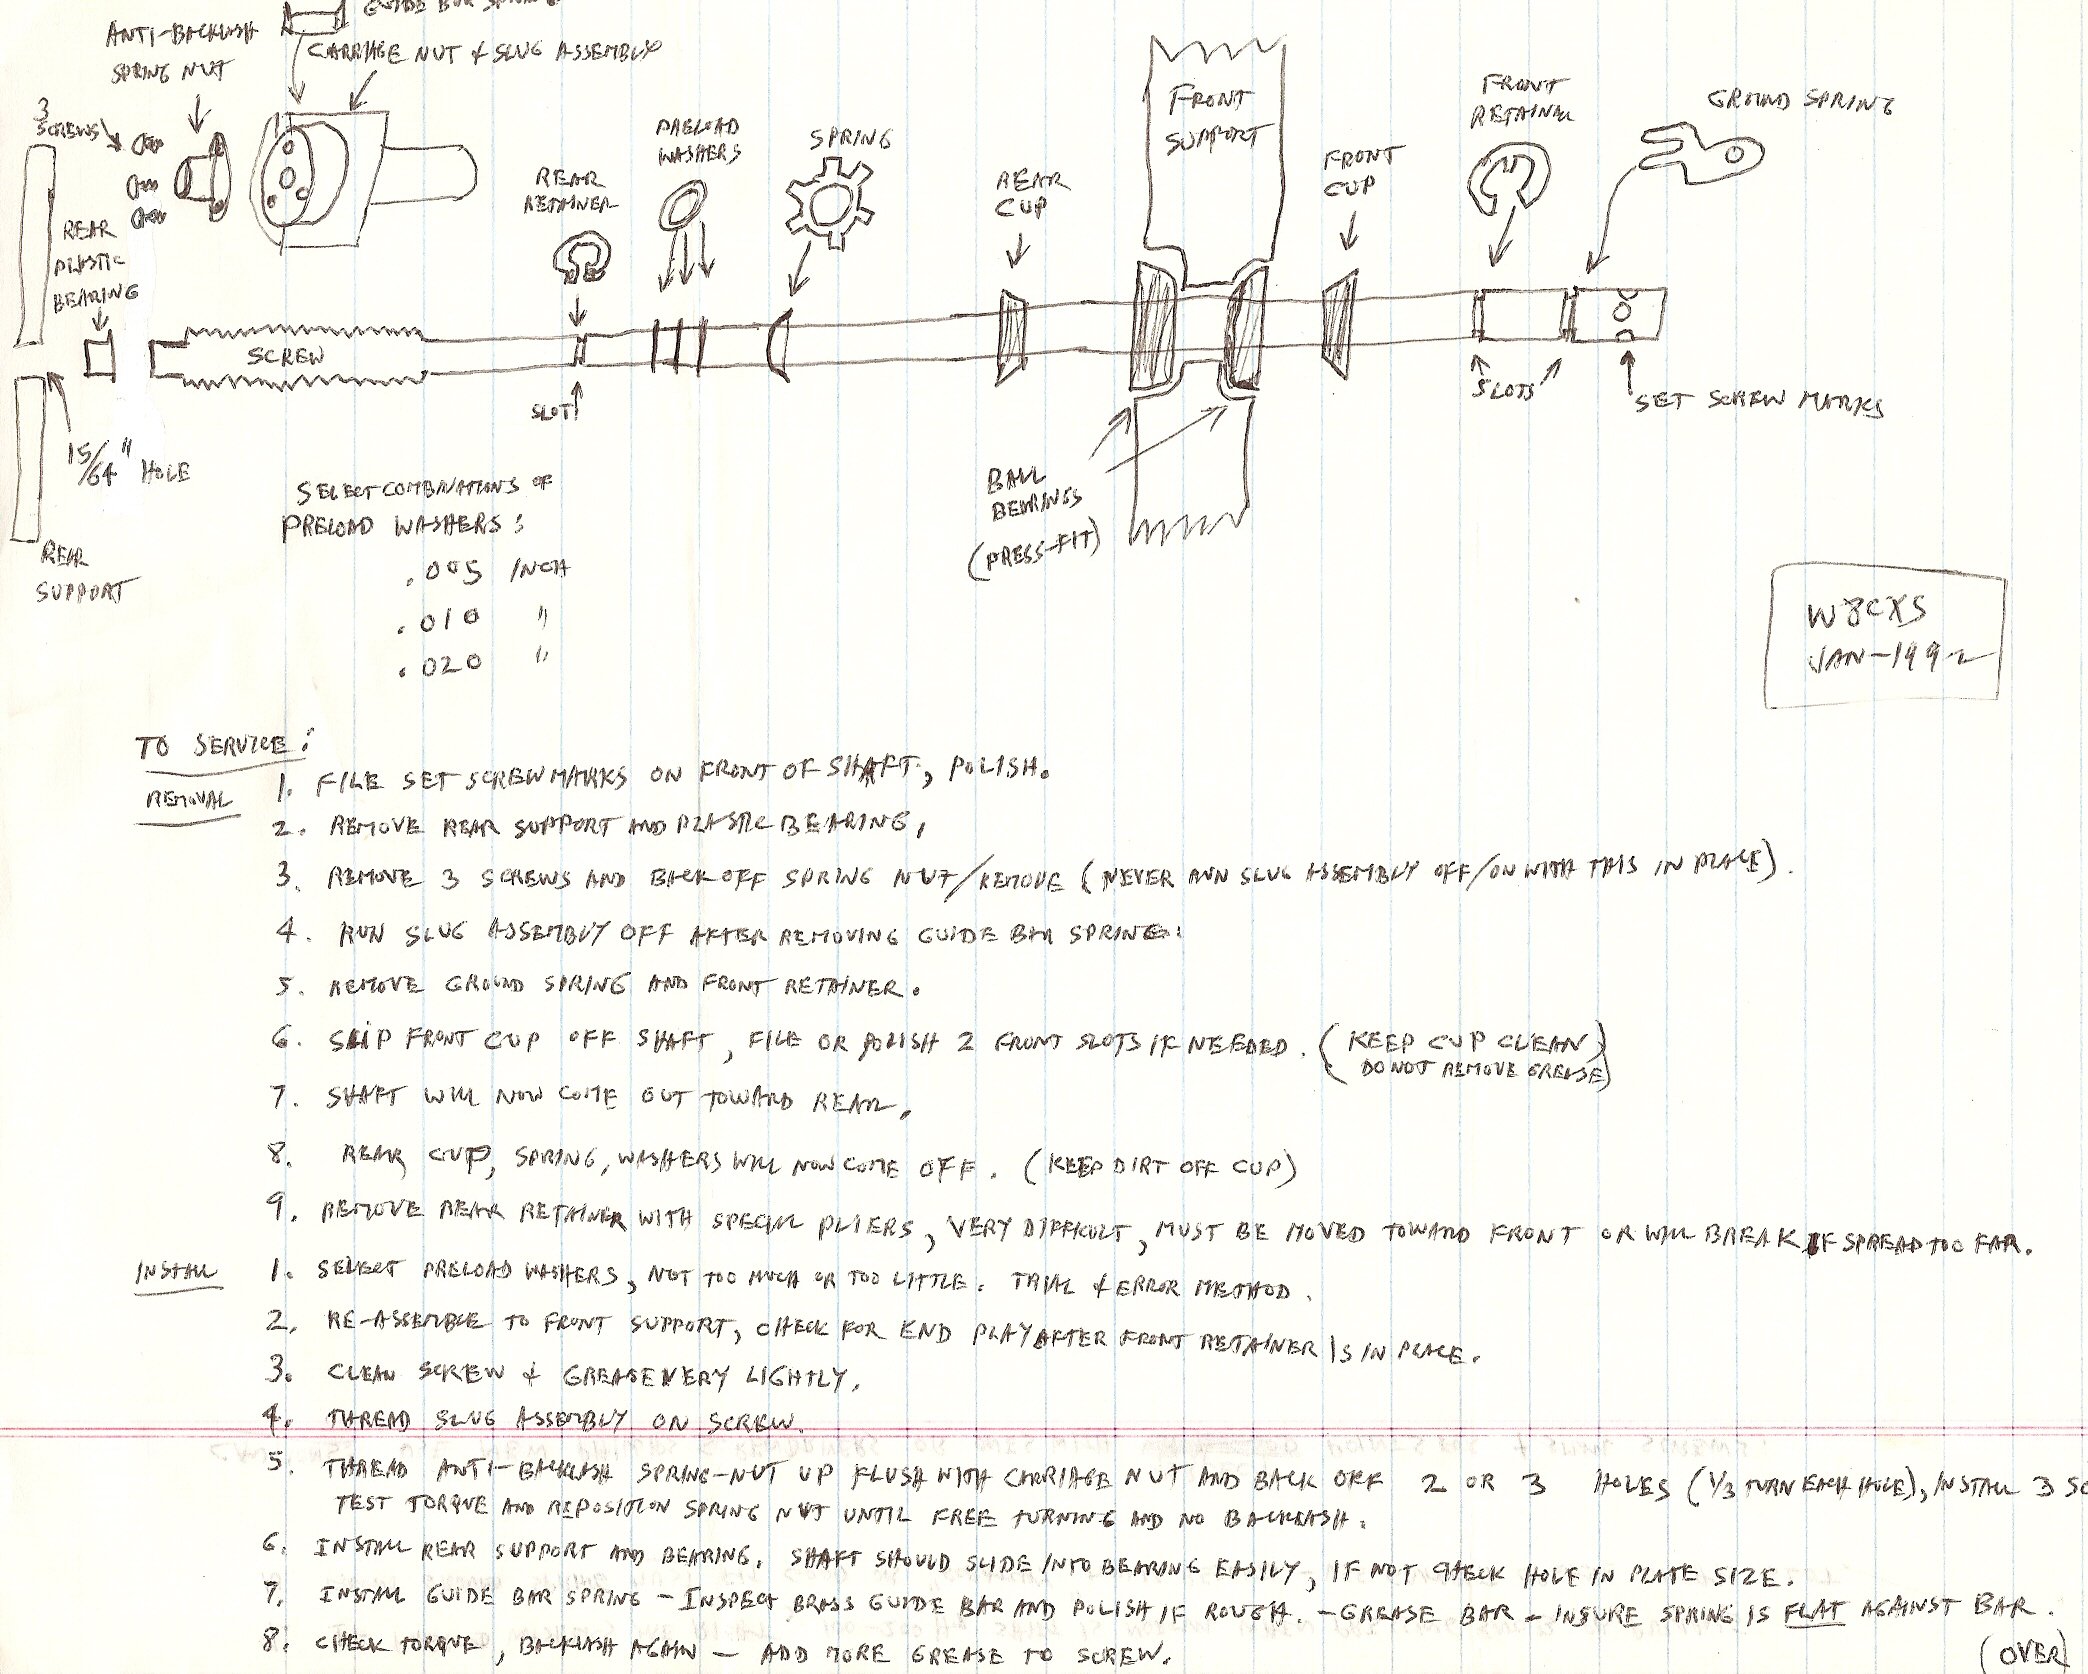 GUIDE BAR SPRING
ANTI-BACKLASH
SPRING NUT
CARRIAGE NUT & SLUG ASSEMBLY
3
SCREWS
REAR
PLASTIC
BEARING
REAR
RETAINER
PRELOAD
WASHERS
SPRING
REAR
CUP
FRONT
SUPPORT
FRONT
CUP
FRONT
RETAINER
GROUND SPRING
SCREW
SLOT
SLOTS
SET SCREW MARKS
15/64" HOLE
REAR
SUPPORT
BALL
BEARINGS
(PRESS-FIT)
SELECT COMBINATIONS OF
PRELOAD WASHERS:
.005 INCH
.010 "
.020 "
W8CXS
JAN-1992
TO SERVICE:
REMOVAL
1. FILE SET SCREW MARKS ON FRONT OF SHAFT, POLISH.
2. REMOVE REAR SUPPORT AND PLASTIC BEARING,
3. REMOVE 3 SCREWS AND BACK OFF SPRING NUT/REMOVE (NEVER RUN SLUG ASSEMBLY OFF/ON WITH THIS IN PLACE).
4. RUN SLUG ASSEMBLY OFF AFTER REMOVING GUIDE BAR SPRING.
5. REMOVE GROUND SPRING AND FRONT RETAINER.
6. SLIP FRONT CUP OFF SHAFT, FILE OR POLISH 2 FRONT SLOTS IF NEEDED. (KEEP CUP CLEAN
DO NOT REMOVE GREASE)
7. SHAFT WILL NOW COME OUT TOWARD REAR.
8. REAR CUP, SPRING, WASHERS WILL NOW COME OFF. (KEEP DIRT OFF CUP)
9. REMOVE REAR RETAINER WITH SPECIAL PLIERS, VERY DIFFICULT, MUST BE MOVED TOWARD FRONT OR WILL BREAK IF SPREAD TOO FAR.
INSTALL
1. SELECT PRELOAD WASHERS, NOT TOO MUCH OR TOO LITTLE. TRIAL & ERROR METHOD.
2. RE-ASSEMBLE TO FRONT SUPPORT, CHECK FOR END PLAY AFTER FRONT RETAINER IS IN PLACE.
3. CLEAN SCREW & GREASE VERY LIGHTLY.
4. THREAD SLUG ASSEMBLY ON SCREW.
5. THREAD ANTI-BACKLASH SPRING-NUT UP FLUSH WITH CARRIAGE NUT AND BACK OFF 2 OR 3 HOLES (1/3 TURN EACH HOLE), INSTALL 3 SC
TEST TORQUE AND REPOSITION SPRING NUT UNTIL FREE TURNING AND NO BACKLASH.
6. INSTALL REAR SUPPORT AND BEARING. SHAFT SHOULD SLIDE INTO BEARING EASILY, IF NOT CHECK HOLE IN PLATE SIZE.
7. INSTALL GUIDE BAR SPRING - INSPECT BRASS GUIDE BAR AND POLISH IF ROUGH. - GREASE BAR - INSURE SPRING IS FLAT AGAINST BAR.
8. CHECK TORQUE, BACKLASH AGAIN - ADD MORE GREASE TO SCREW.
(OVER)